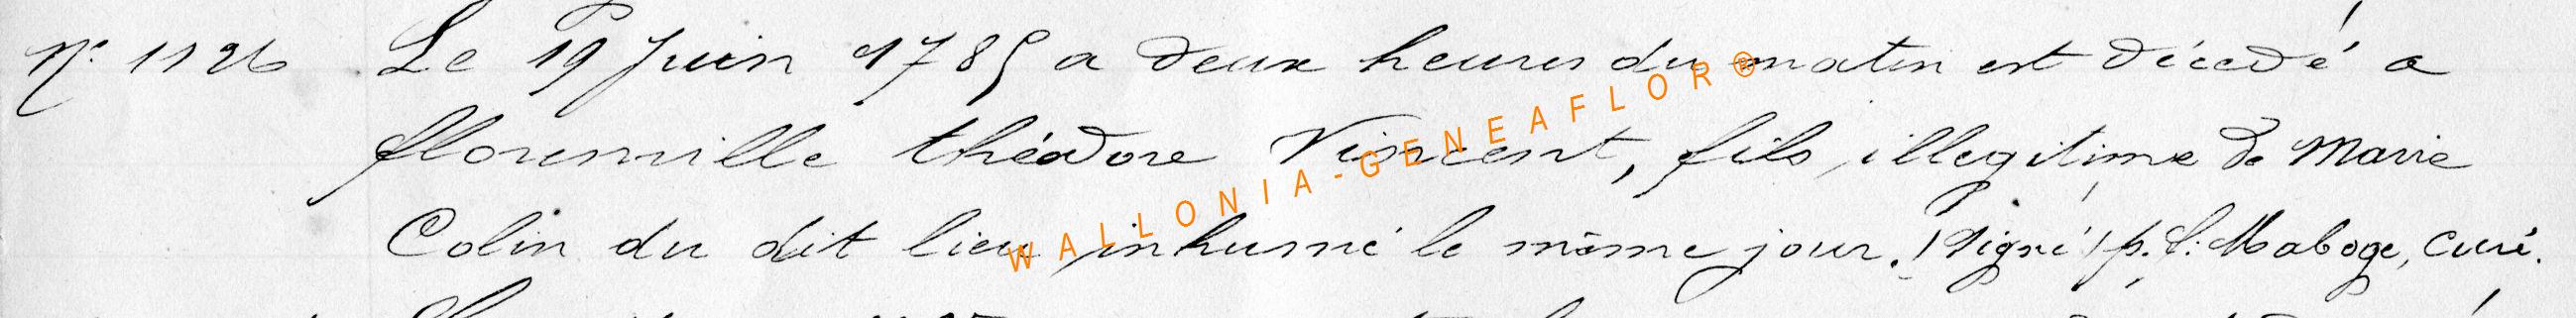 N° 1126 Le 19 Juin 1785 a deux heures du matin est décedé a
florenville théodore Vincent, fils illegitime de Marie
Colin du dit lieu inhumé le même jour. (Signé) p. f. Maboge, curé.
WALLONIA-GENEAFLOR®